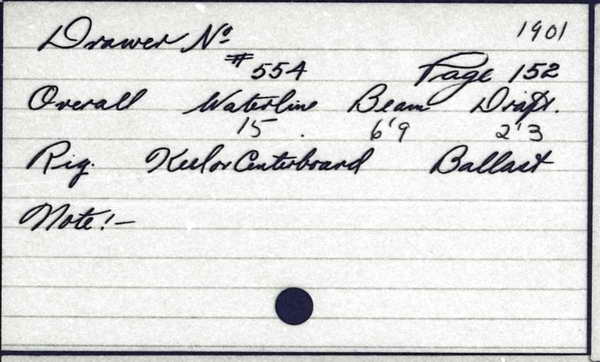 Drawer No 1901
#554 Page 152
Overall Waterline Beam Draft.
15. 6'9 2'3
Rig. Keel or Centerboard Ballast
Note:-